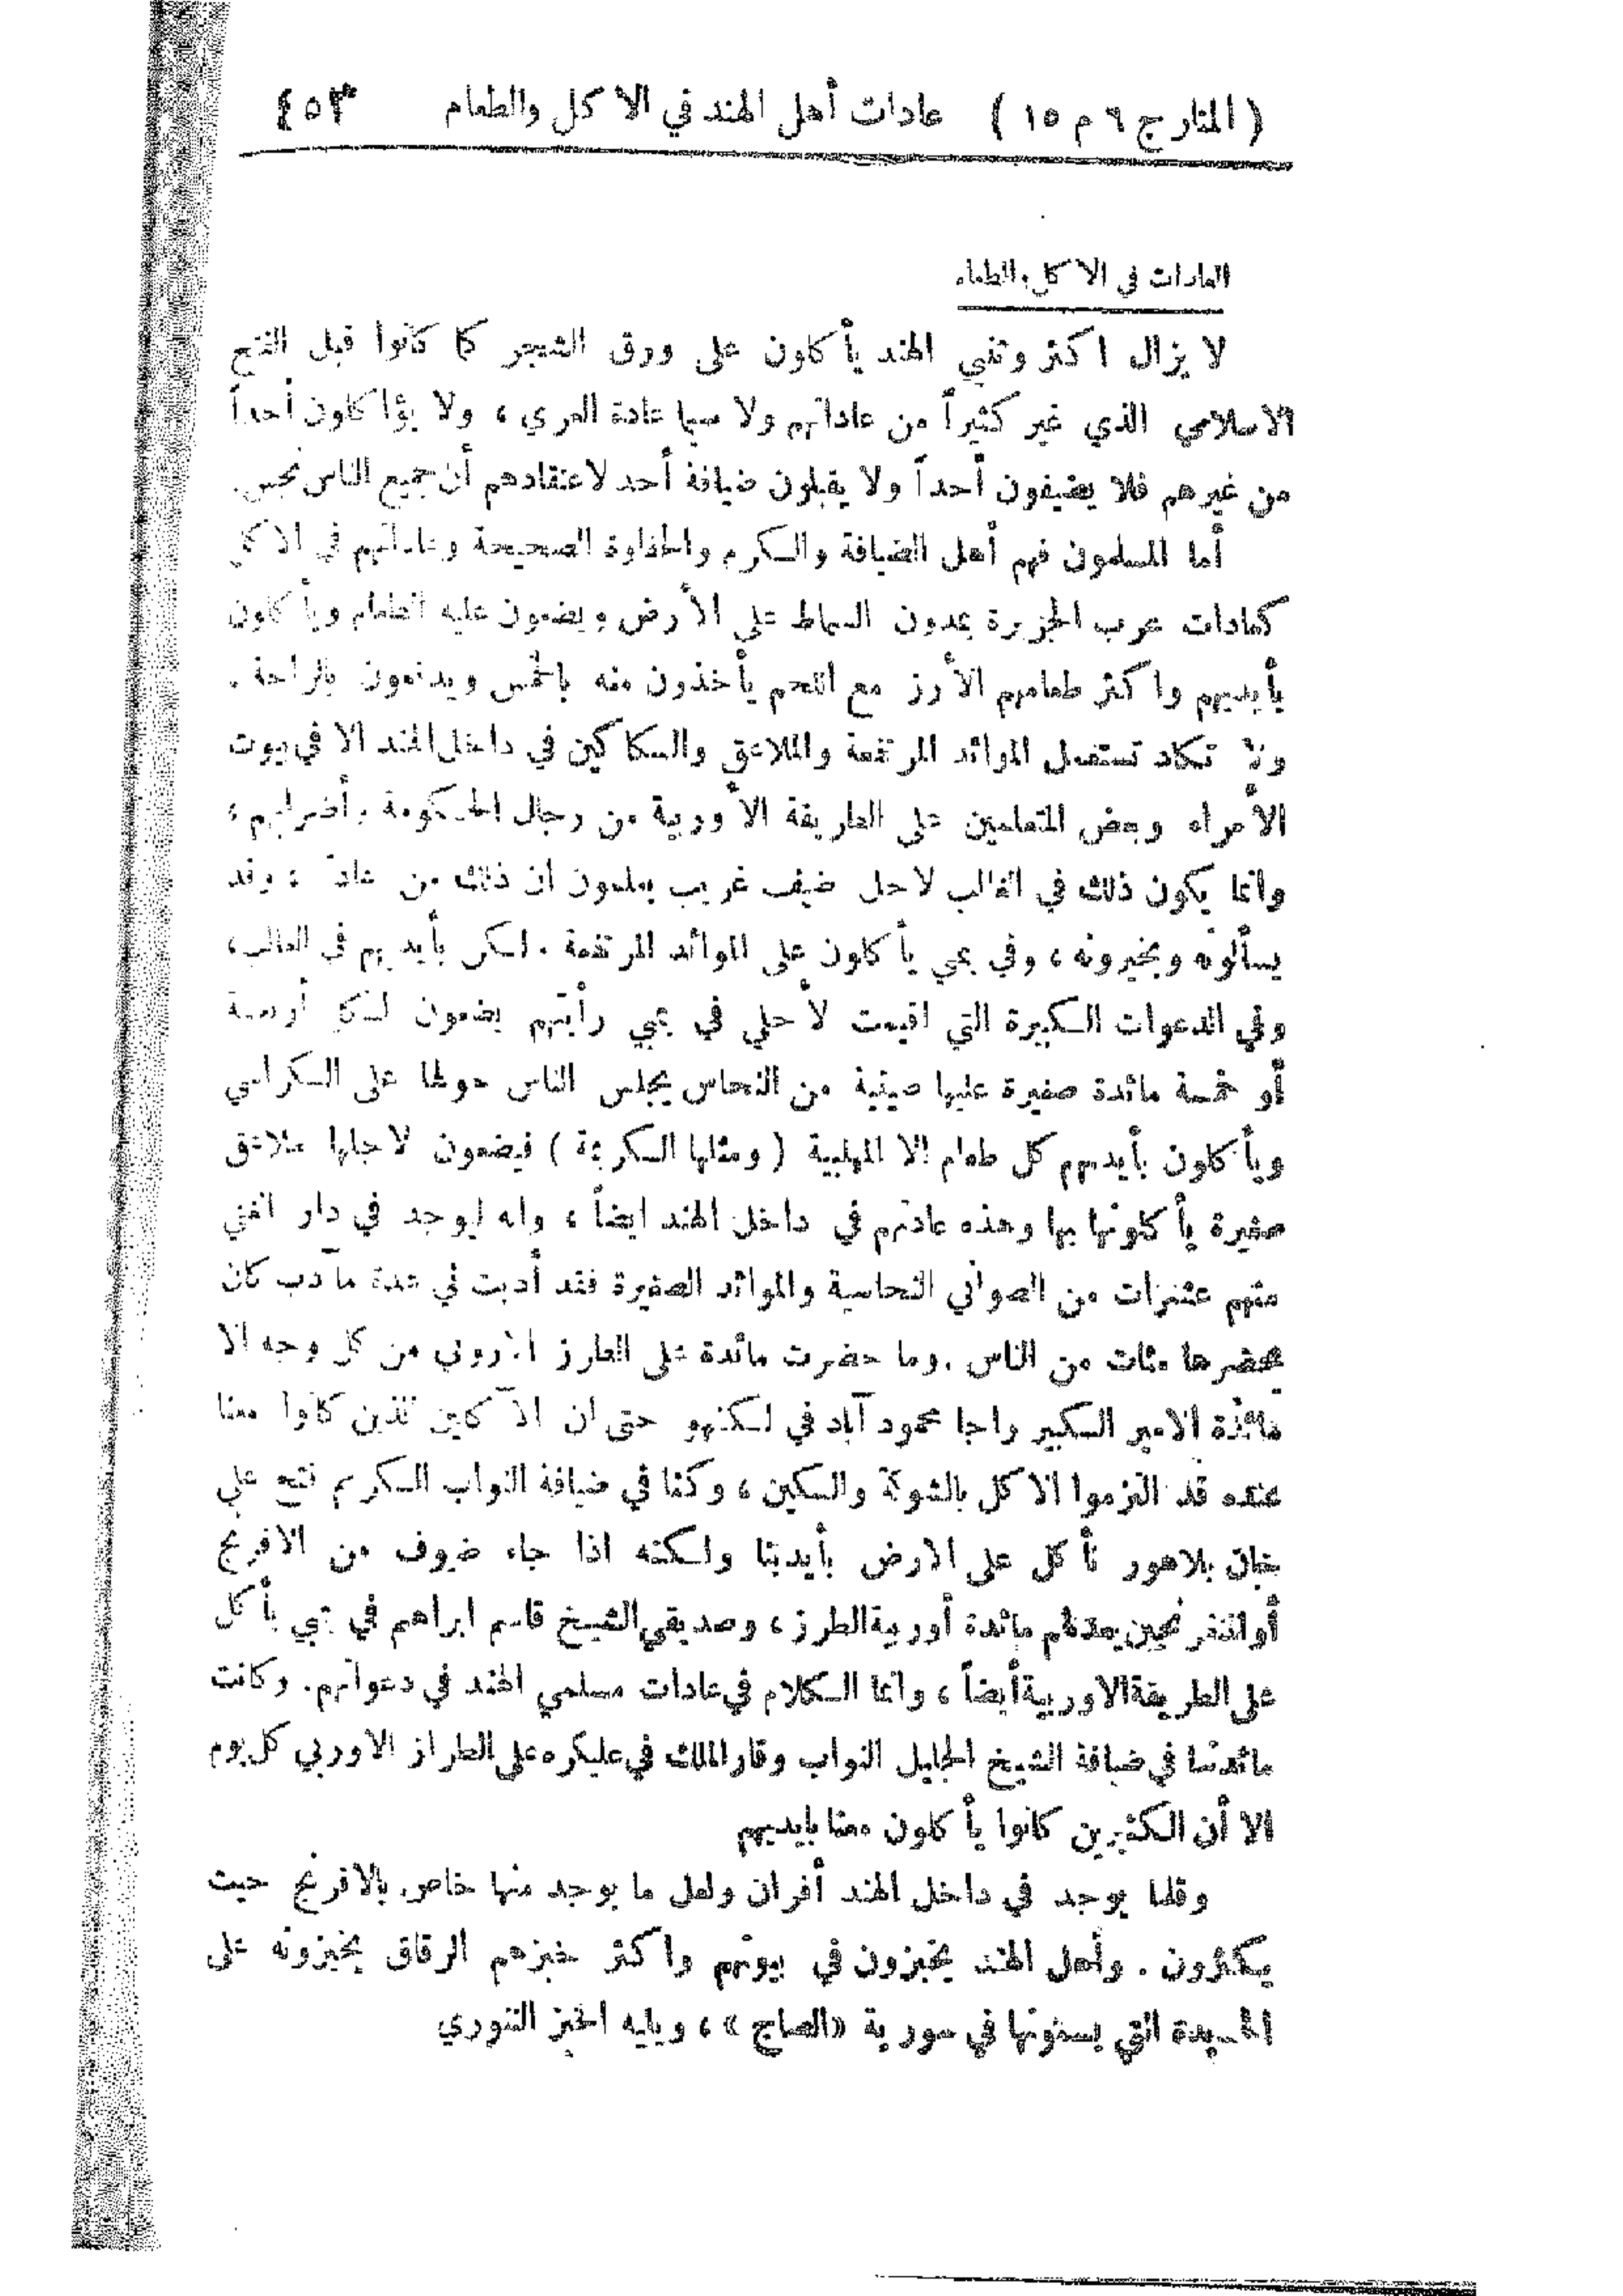 ( المنار ج ٦ م ١٥ ) عادات أهل الهند في الاكل والطعام ٤٥٣
العادات في الاكل والطعام
لا يزال اكثر وثنيي الهند يأكلون على ورق الشجر كما كانوا قبل الفتح
الاسلامي الذي غير كثيراً من عاداتهم ولا سيما عادة العري ، ولا يؤاكلون أحداً
من غيرهم فلا يضيفون أحداً ولا يقبلون ضيافة أحد لاعتقادهم أن جميع الناس نجس .
أما المسلمون فهم أهل الضيافة والكرم والحفاوة الصحيحة وعاداتهم في الاكل
كعادات عرب الجزيرة يمدون السماط على الأرض ويضعون عليه الطعام ويأكلون
بأيديهم واكثر طعامهم الأرز مع اللحم يأخذون منه بالخمس ويدفعون بالراحة .
ولا تكاد تستعمل الموائد المرتفعة والملاعق والسكاكين في داخل الهند الا في بيوت
الأمراء وبعض المتعلمين على الطريقة الأوربية من رجال الحكومة وأضرابهم ،
وانما يكون ذلك في الغالب لاجل ضيف غريب يعلمون ان ذلك من عادته ، وقد
يسألونه ويخيرونه ، وفي بمبي يأكلون على الموائد المرتفعة . لكن بأيديهم في الغالب ،
وفي الدعوات الكبيرة التي اقيمت لأجلي في بمبي رأيتهم يضعون لكل أربعة
أو خمسة مائدة صغيرة عليها صينية من النحاس يجلس الناس حولها على الكراسي
ويأكلون بأيديهم كل طعام الا المهلبية ( ومثلها الكريمة ) فيضعون لاجلها ملاعق
صغيرة يأكلونها بها وهذه عادتهم في داخل الهند ايضاً ، وانه ليوجد في دار الغني
منهم عشرات من الصواني النحاسية والموائد الصغيرة فقد أدبت في عدة مآدب كان
يحضرها مئات من الناس . وما حضرت مائدة على الطراز الاروبي من كل وجه الا
مائدة الامير الكبير راجا محمود آباد في لكنهو حتى ان الآكلين الذين كانوا معنا
عنده قد التزموا الاكل بالشوكة والسكين ، وكنا في ضيافة النواب الكريم فتح علي
خان بلاهور نأكل على الارض بأيدينا ولكنه اذا جاء ضيوف من الافرنج
أو المتفرنجين يعد لهم مائدة أوربية الطرز ، وصديقي الشيخ قاسم ابراهم في بمبي يأكل
على الطريقة الاوربية أيضاً ، وانما الكلام في عادات مسلمي الهند في دعواتهم . وكانت
مائدتنا في ضيافة الشيخ الجليل النواب وقار الملك في عليكره على الطراز الاوربي كل يوم
الا أن الكثيرين كانوا يأكلون معنا بايديهم
وقلما يوجد في داخل الهند أفران ولعل ما يوجد منها خاص بالافرنج حيث
يكثرون . وأهل الهند يخبزون في بيوتهم واكثر خبزهم الرقاق يخبزونه على
الحديدة التي يسمونها في سورية «الصاج» ، ويليه الخبز التنوري